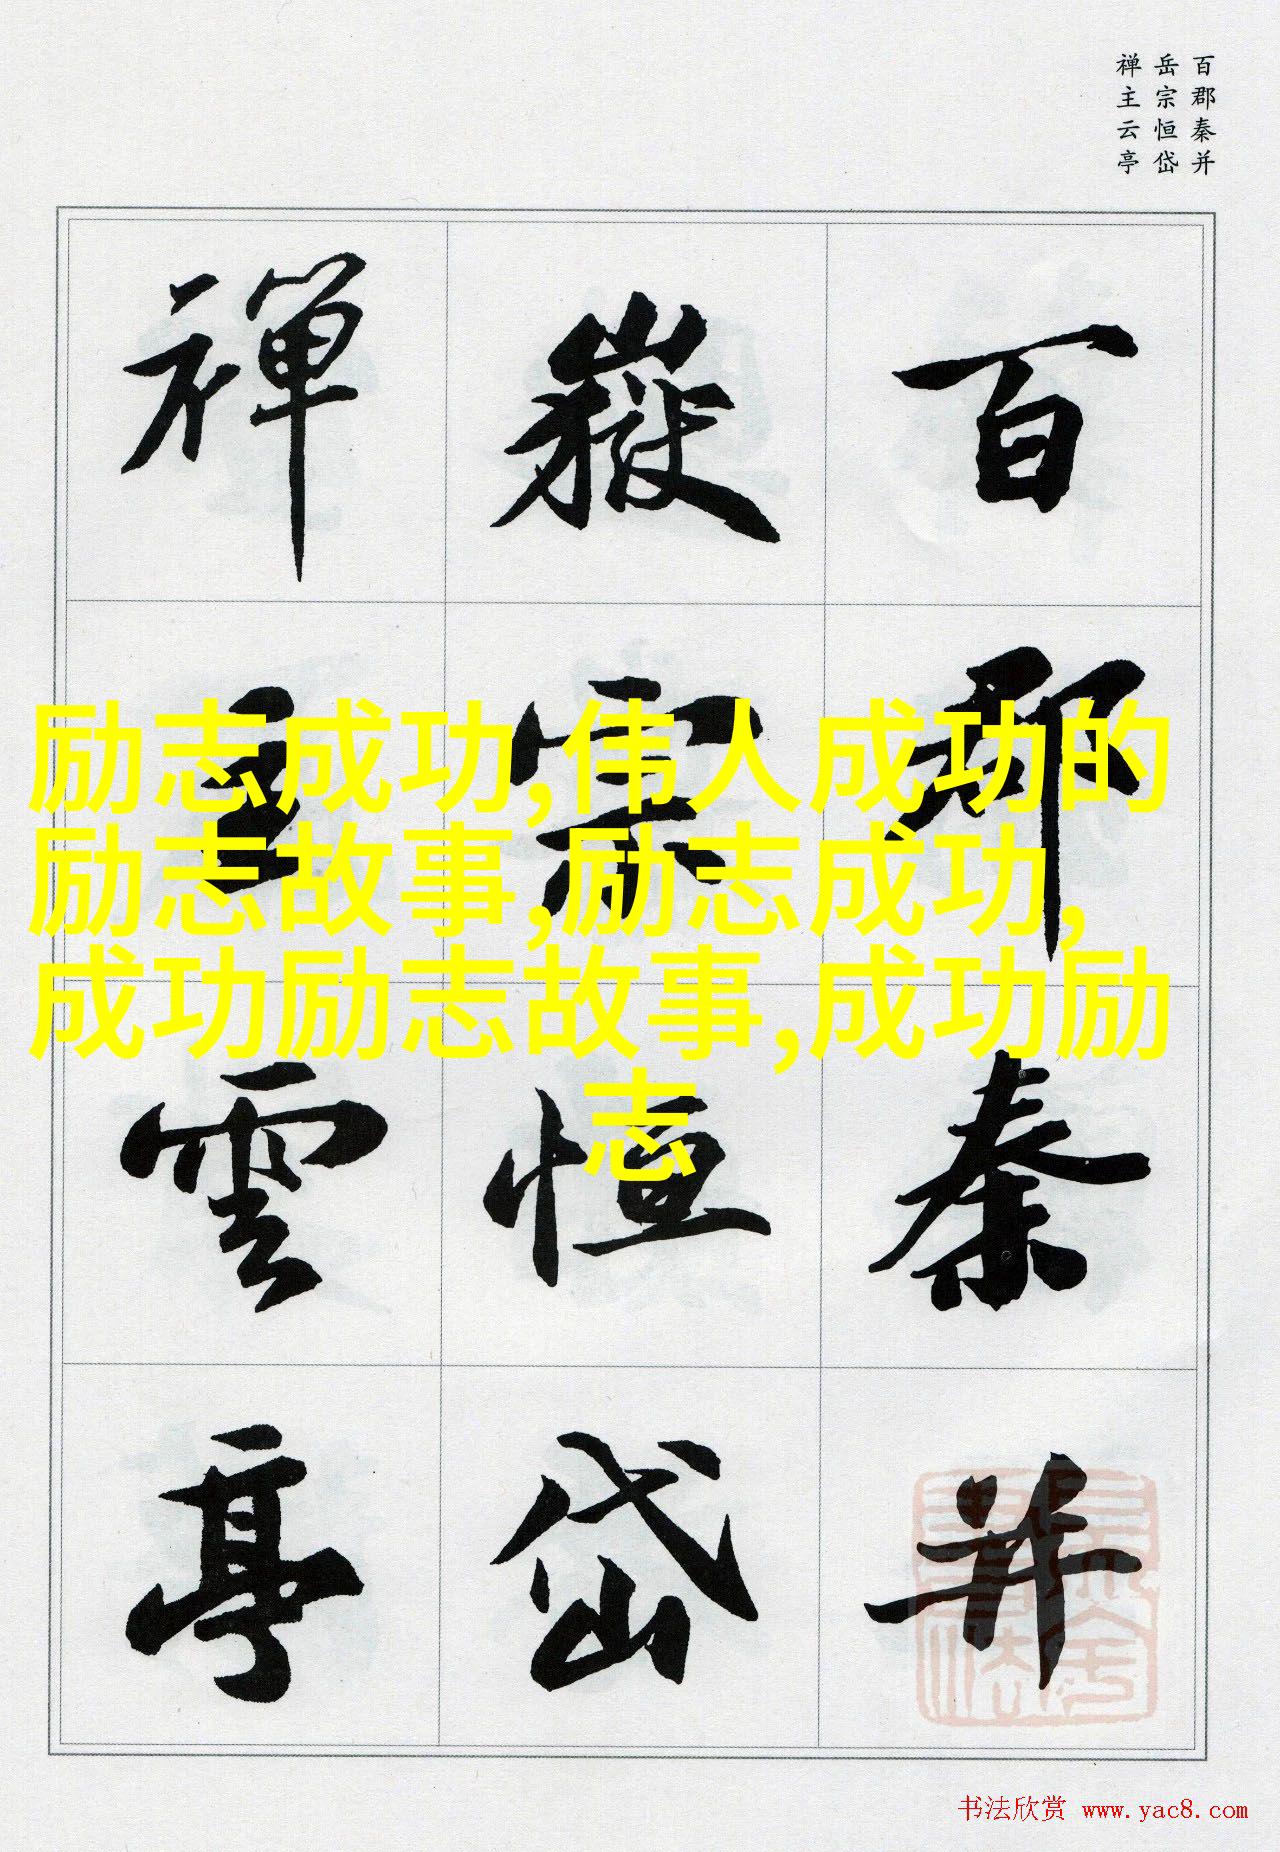 百郡秦并
岳宗恒岱
禅主云亭
百郡秦并
嶽宗恒岱
禅主雲亭
励志成功,伟人成功的
励志故事,励志成功,
成功励志故事,成功励
志
书法欣赏 www.yac8.com